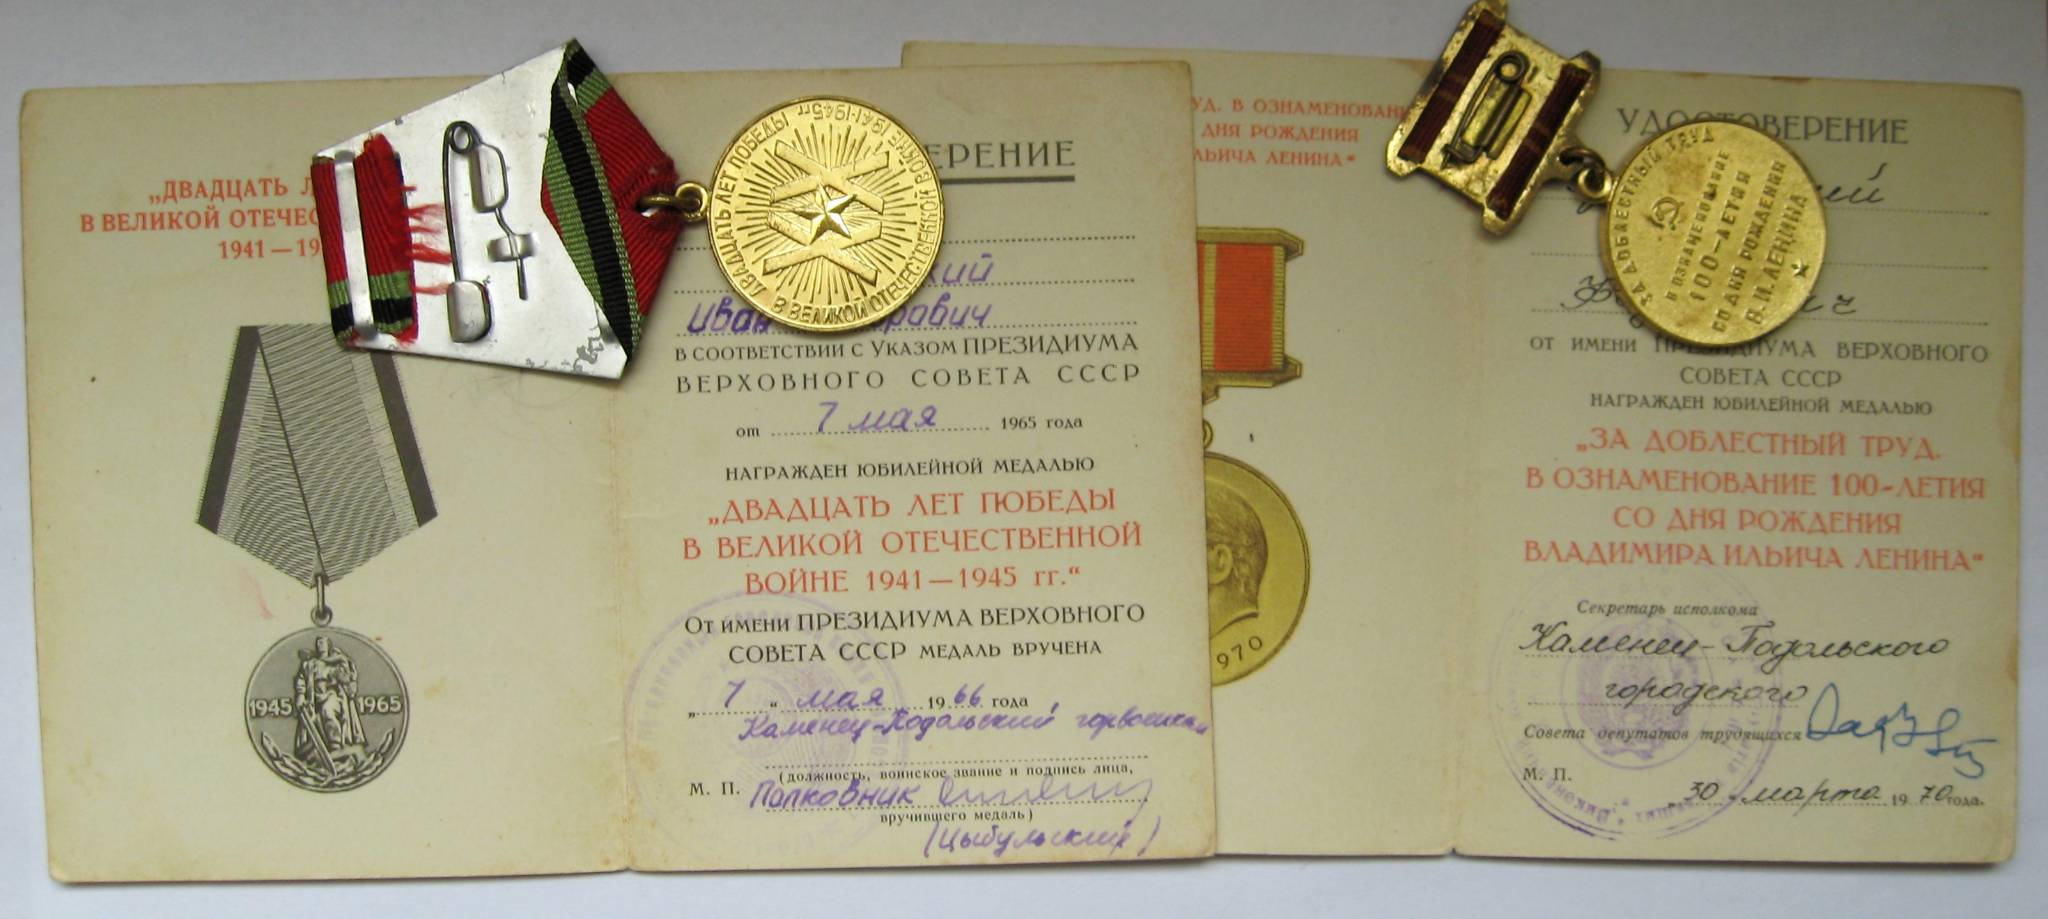 „ДВАДЦАТЬ
В ВЕЛИКОЙ
1941—
1945 1965
ДВАДЦАТЬ ЛЕТ ПОБЕДЫ
В ВЕЛИКОЙ ОТЕЧЕСТВЕННОЙ ВОЙНЕ 1941-1945 гг
ЕРЕНИЕ
кий
Иван рович
В СООТВЕТСТВИИ С УКАЗОМ ПРЕЗИДИУМА
ВЕРХОВНОГО СОВЕТА СССР
от 7 мая 1965 года
НАГРАЖДЕН ЮБИЛЕЙНОЙ МЕДАЛЬЮ
„ДВАДЦАТЬ ЛЕТ ПОБЕДЫ
В ВЕЛИКОЙ ОТЕЧЕСТВЕННОЙ
ВОЙНЕ 1941—1945 гг.“
От имени ПРЕЗИДИУМА ВЕРХОВНОГО
СОВЕТА СССР МЕДАЛЬ ВРУЧЕНА
„7“ мая 1966 года
Каменец-Подольский горвоенком
(должность, воинское звание и подпись лица,
М. П. Полковник
вручившего медаль)
(Цыбульский)
УД. В ОЗНАМЕНОВАНИ
ДНЯ РОЖДЕНИЯ
ЬИЧА ЛЕНИНА“
970
ЗА ДОБЛЕСТНЫЙ ТРУД
В ОЗНАМЕНОВАНИЕ
100-ЛЕТИЯ
СО ДНЯ РОЖДЕНИЯ
В.И.ЛЕНИНА
УДОСТОВЕРЕНИЕ
ий
ич
ОТ ИМЕНИ ПРЕЗИДИУМА ВЕРХОВНОГО
СОВЕТА СССР
НАГРАЖДЕН ЮБИЛЕЙНОЙ МЕДАЛЬЮ
„ЗА ДОБЛЕСТНЫЙ ТРУД.
В ОЗНАМЕНОВАНИЕ 100-ЛЕТИЯ
СО ДНЯ РОЖДЕНИЯ
ВЛАДИМИРА ИЛЬИЧА ЛЕНИНА“
Секретарь исполкома
Каменец-Подольского
городского
Совета депутатов трудящихся
М. П.
„30“ марта 1970 года.